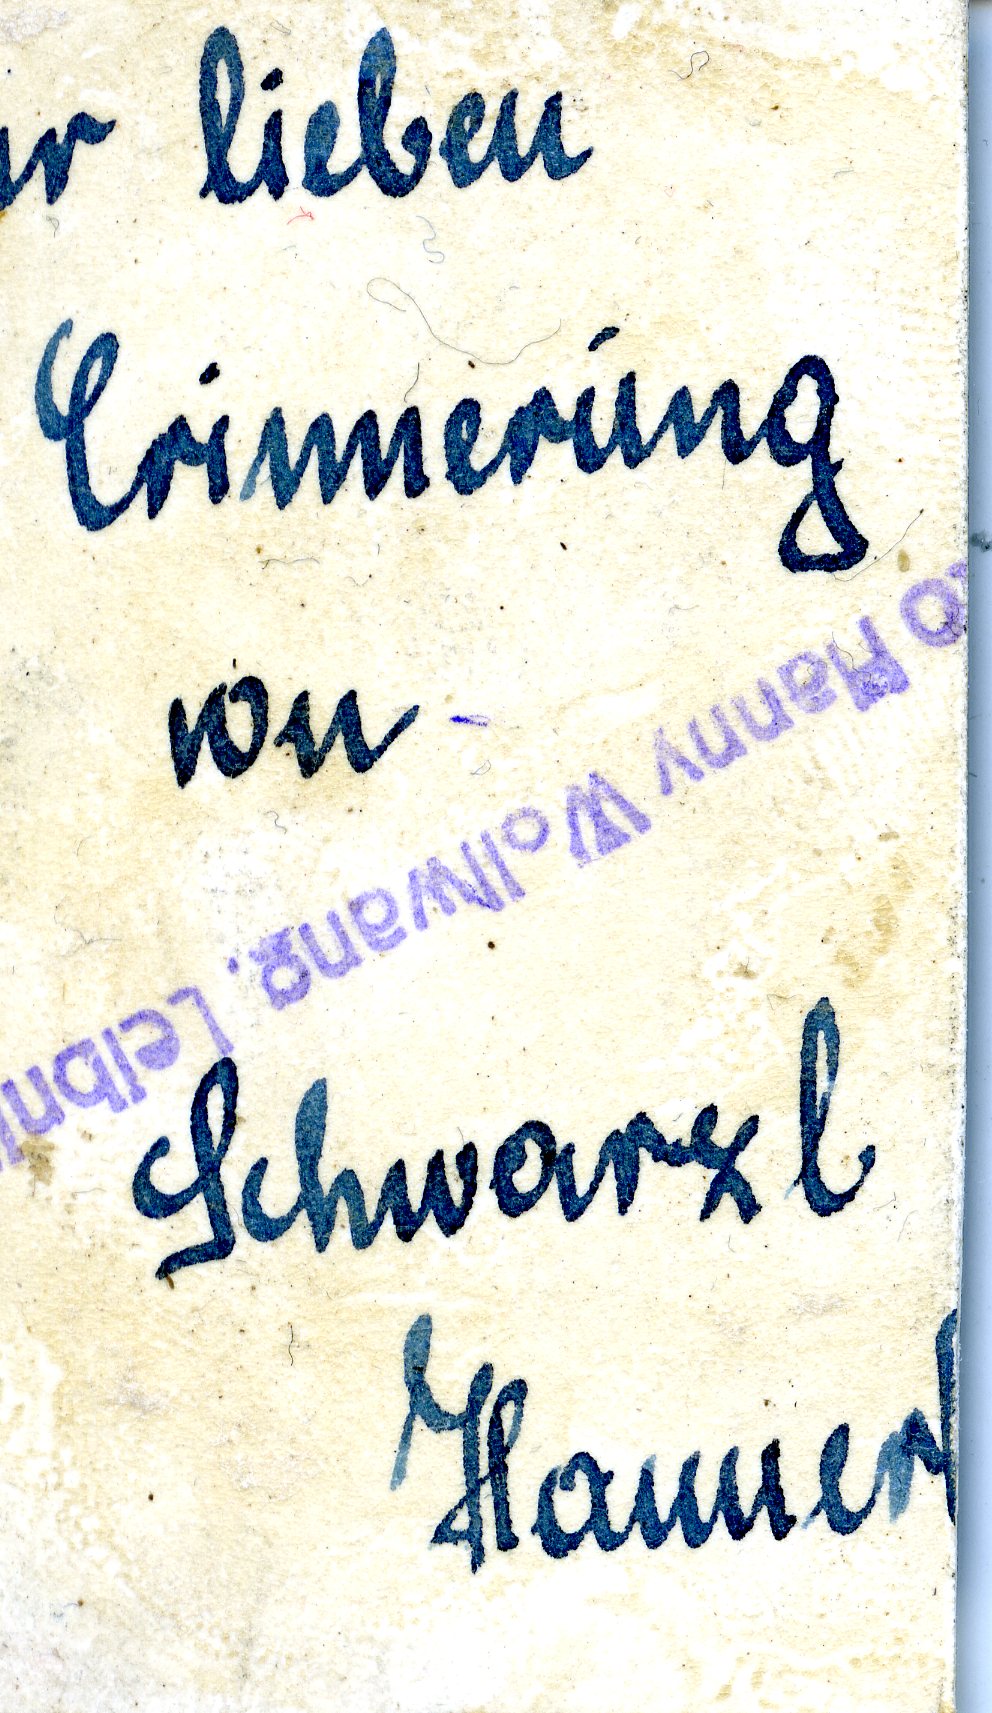 ur lieben
Erinnerung
von
Schwarzl
to Hanny Wollwang. Leibni